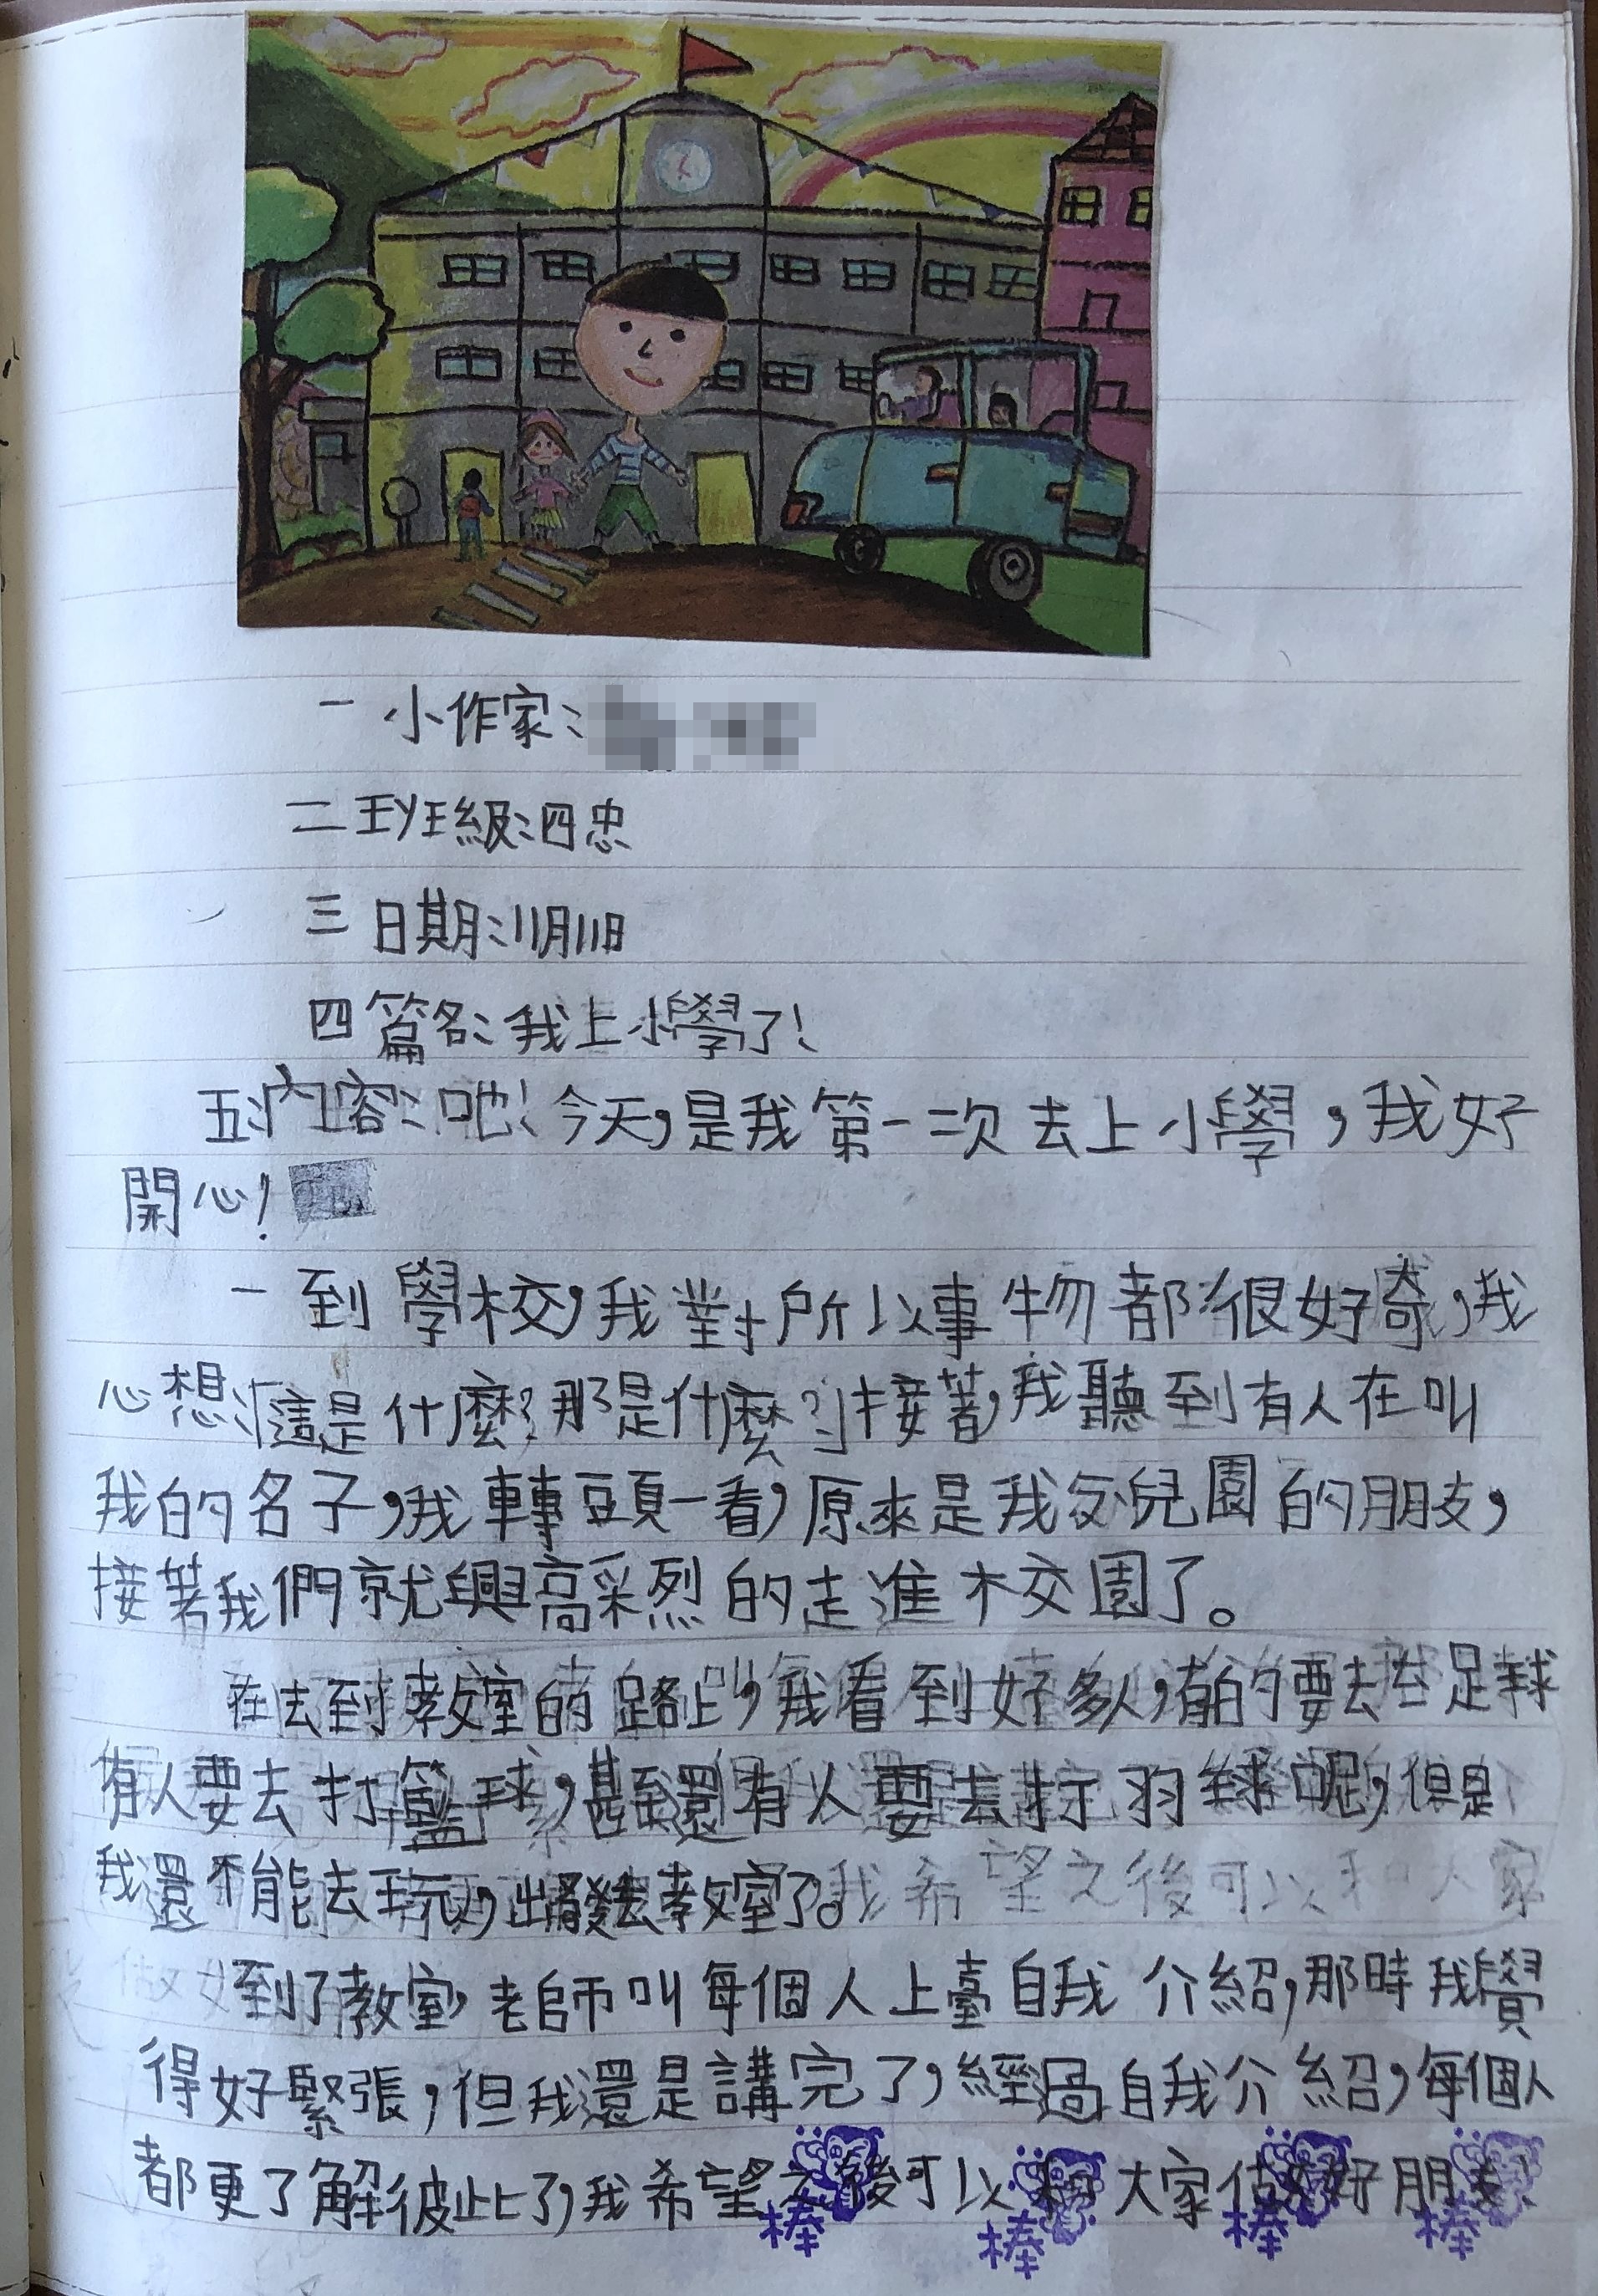 一 小作家:
二 班級:四忠
三 日期:11月11日
四 篇名:我上小學了!
五 內容:吔!今天,是我第一次去上小學,我好
開心!
一到學校,我對所以事物都很好奇,我
心想:「這是什麼?那是什麼?」接著,我聽到有人在叫
我的名子,我轉頭一看,原來是我幼兒園的朋友,
接著我們就興高采烈的走進校園了。
在去到教室的路上,我看到好多人,有的要去踢足球
有人要去打籃球,甚至還有人要去打羽球呢,但是
我還不能去玩,出發去教室了。我希望之後可以和大家
做好
到了教室,老師叫每個人上臺自我介紹,那時我覺
得好緊張,但我還是講完了,經過自我介紹,每個人
都更了解彼此了,我希望之後可以和大家做好朋友
棒 棒 棒 棒